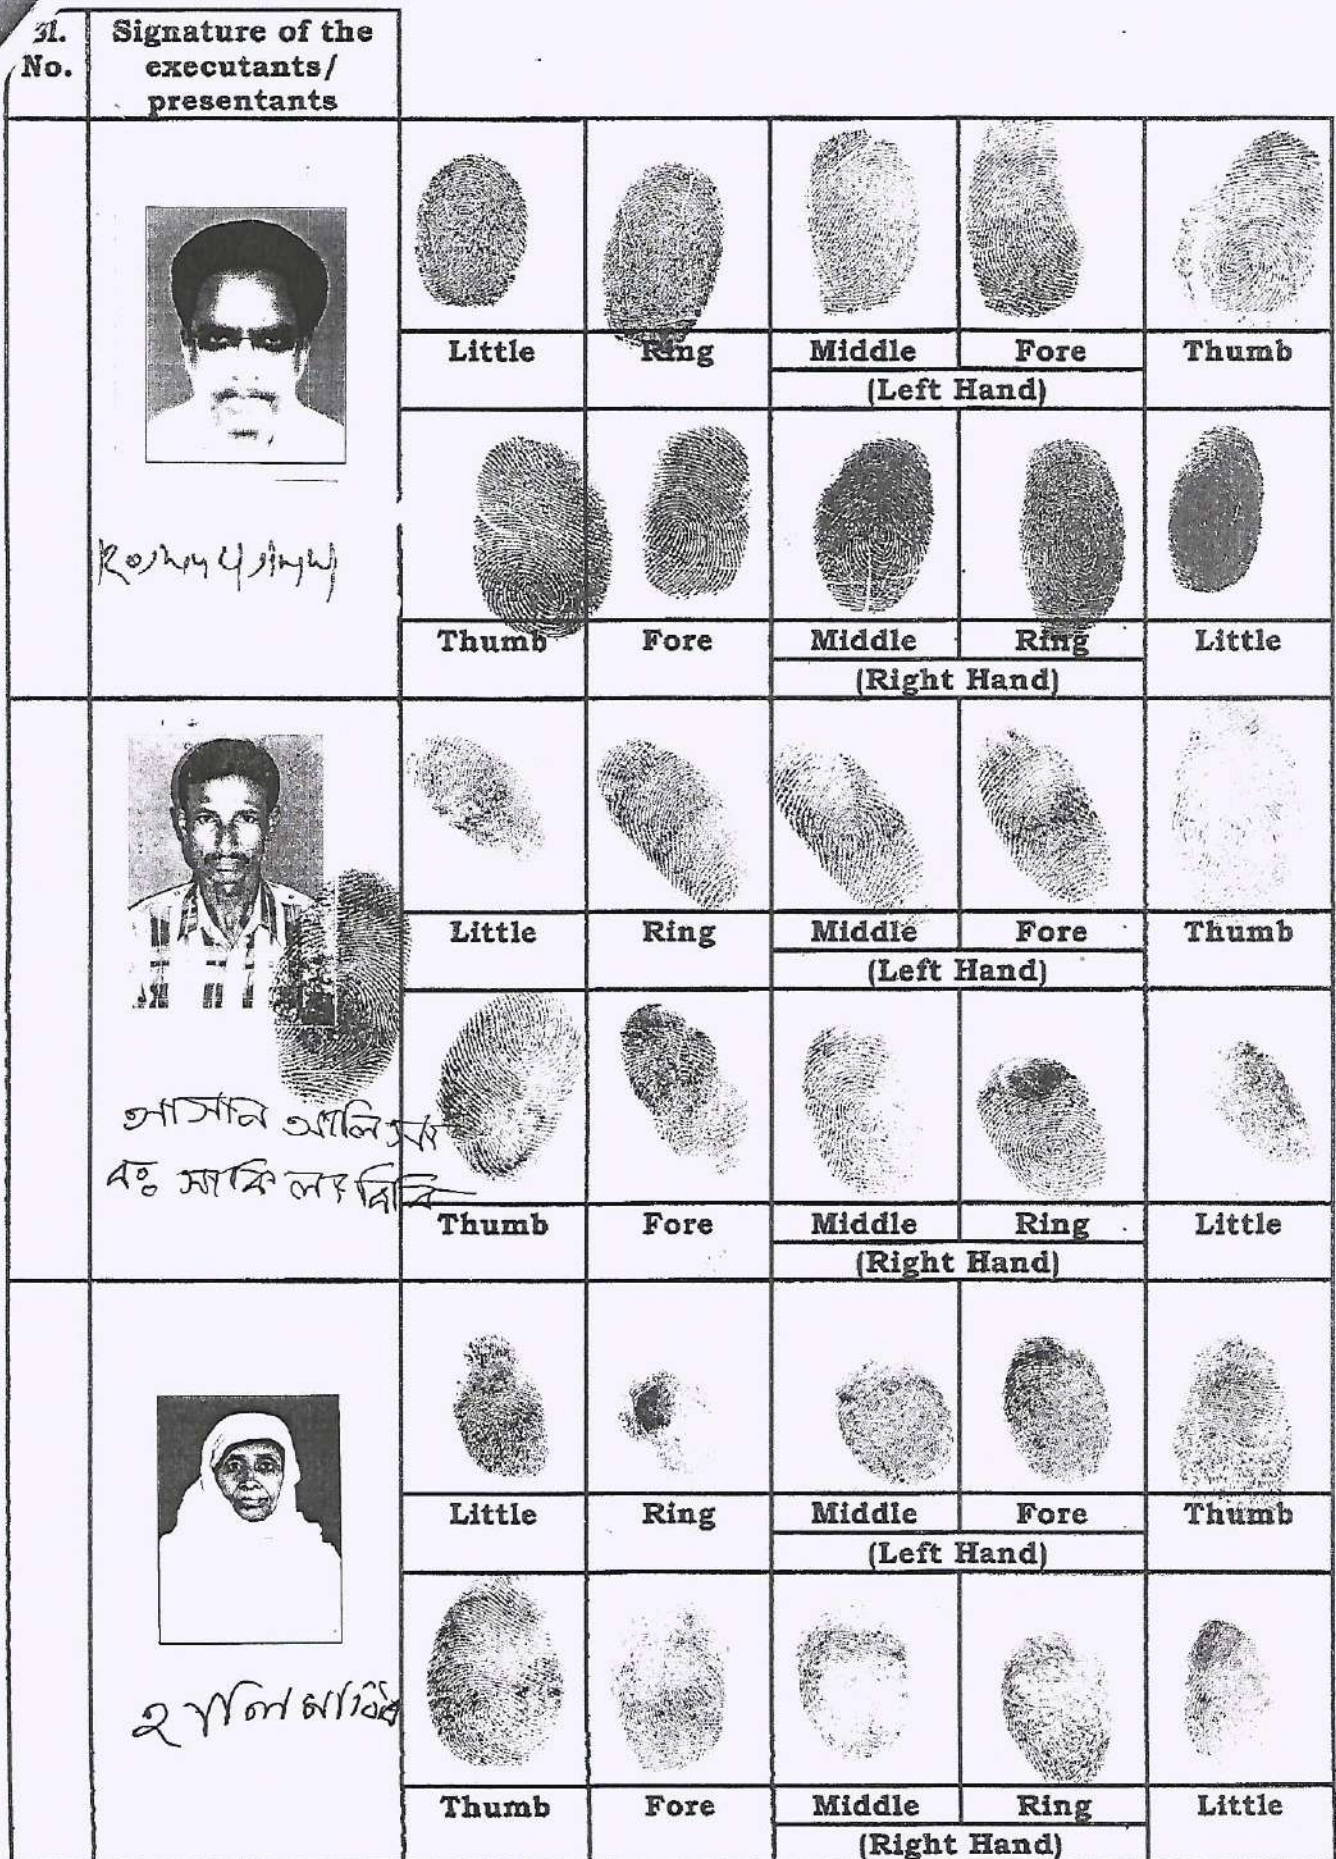 Sl. Signature of the
No. executants/
presentants
Little Ring Middle Fore Thumb
(Left Hand)
Thumb Fore Middle Ring Little
(Right Hand)
Little Ring Middle Fore Thumb
(Left Hand)
আসান আলি
বঃ
Thumb Fore Middle Ring Little
(Right Hand)
Little Ring Middle Fore Thumb
(Left Hand)
Thumb Fore Middle Ring Little
(Right Hand)